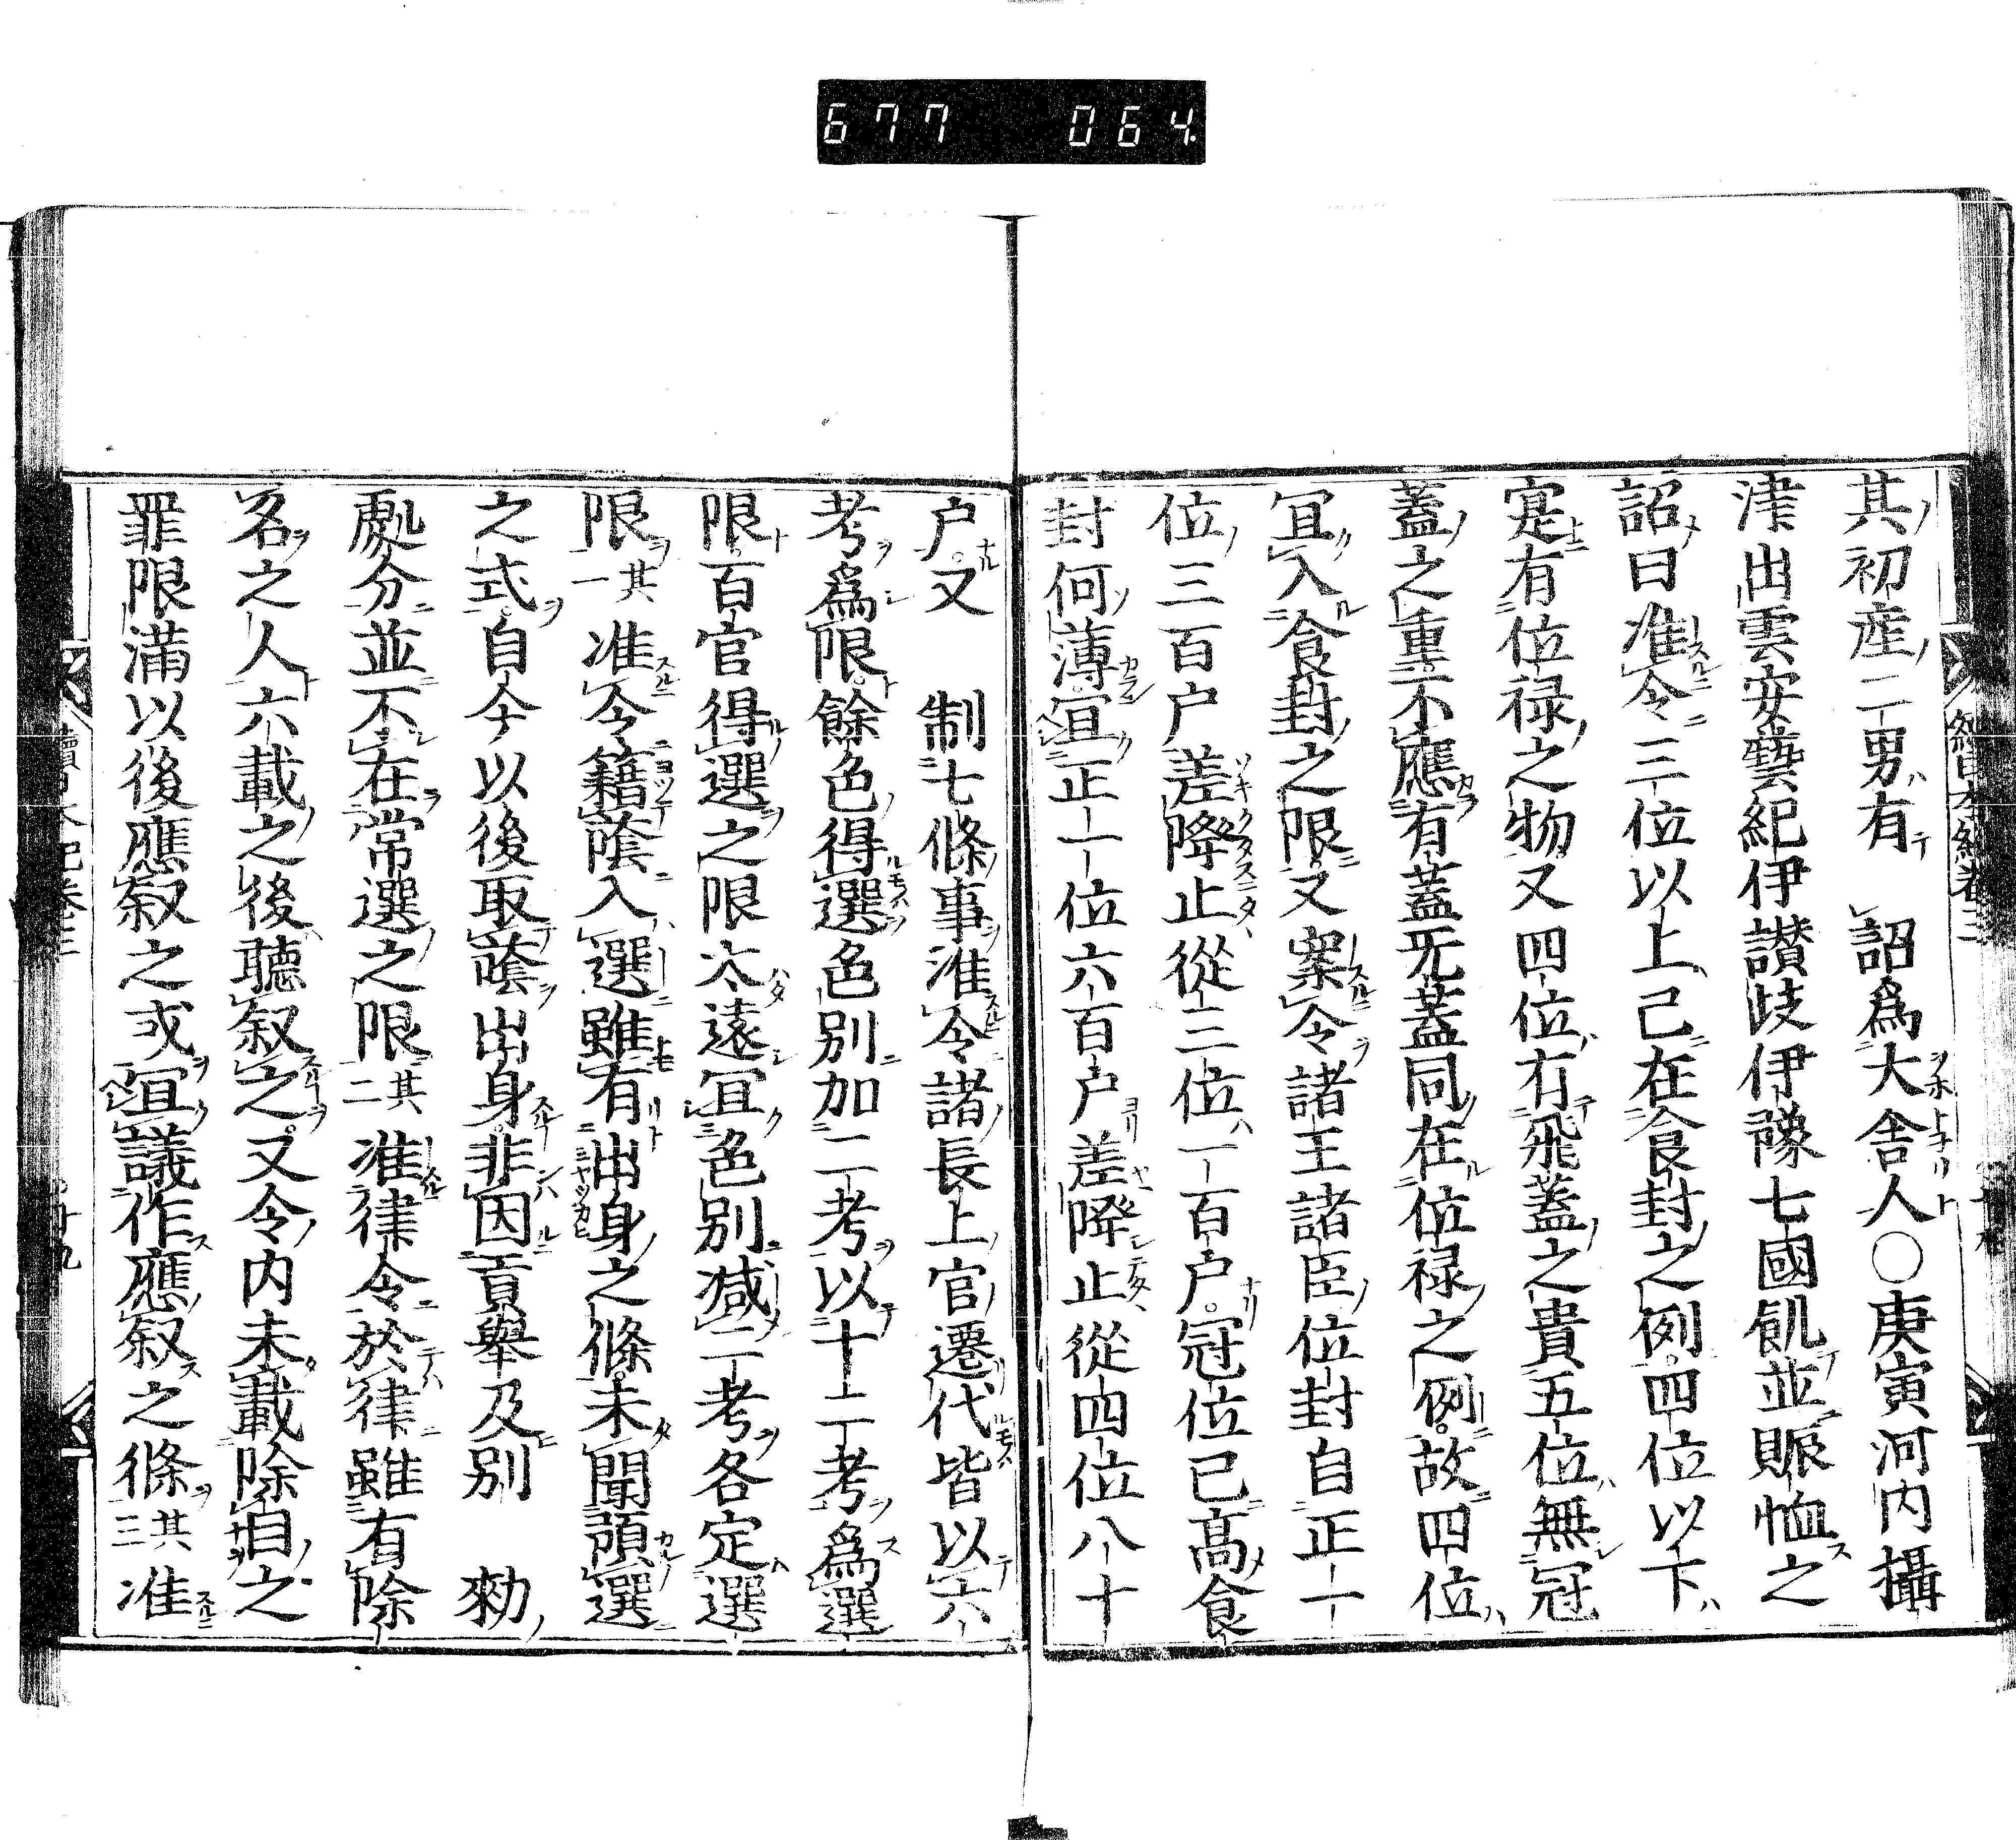 677 064
其初產二男有 詔爲大舍人○庚寅河内攝
津出雲安藝紀伊讃岐伊豫七國飢並賑恤之
詔曰准令三位以上已在食封之例四位以下
寔有位禄之物又四位有飛蓋之貴五位無冠
蓋之重不應有蓋无蓋同在位禄之例故四位
宜入食封之限又案令諸王諸臣位封自正一
位三百户差降止從三位一百户冠位已高食
封何薄宜正一位六百户差降止從四位八十
户又 制七條事准令諸長上官遷代皆以六
考爲限餘色得選色别加二考以十二考爲選
限百官得選之限太遠宜色别减二考各定選
限其一准令籍蔭入選雖有出身之條未聞預選
之式自今以後取蔭出身非因貢舉及别 勅
處分並不在常選之限其二准律令於律雖有除
名之人六載之後聽叙之又令内未載除名之
罪限滿以後應叙之式宜議作應叙之條其三准